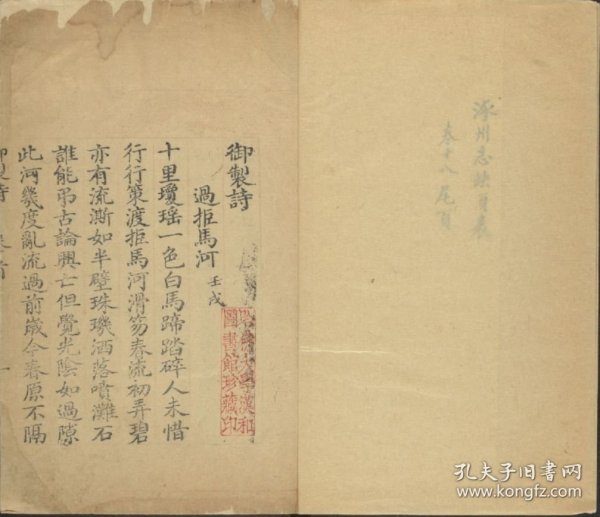 涿州志缺頁表
卷十八尾頁
御製詩
過拒馬河 壬戌
十里瓊瑤一色白馬蹄踏碎人未惜
行行策渡拒馬河滑笏春流初弄碧
亦有流澌如半璧珠璣洒落噴灘石
誰能吊古論興亡但覺光陰如過隙
此河幾度亂流過前歲今春原不隔
御製詩 卷首 一
哈佛大學漢和
圖書館珍藏印
孔夫子旧书网
www.kongfz.com